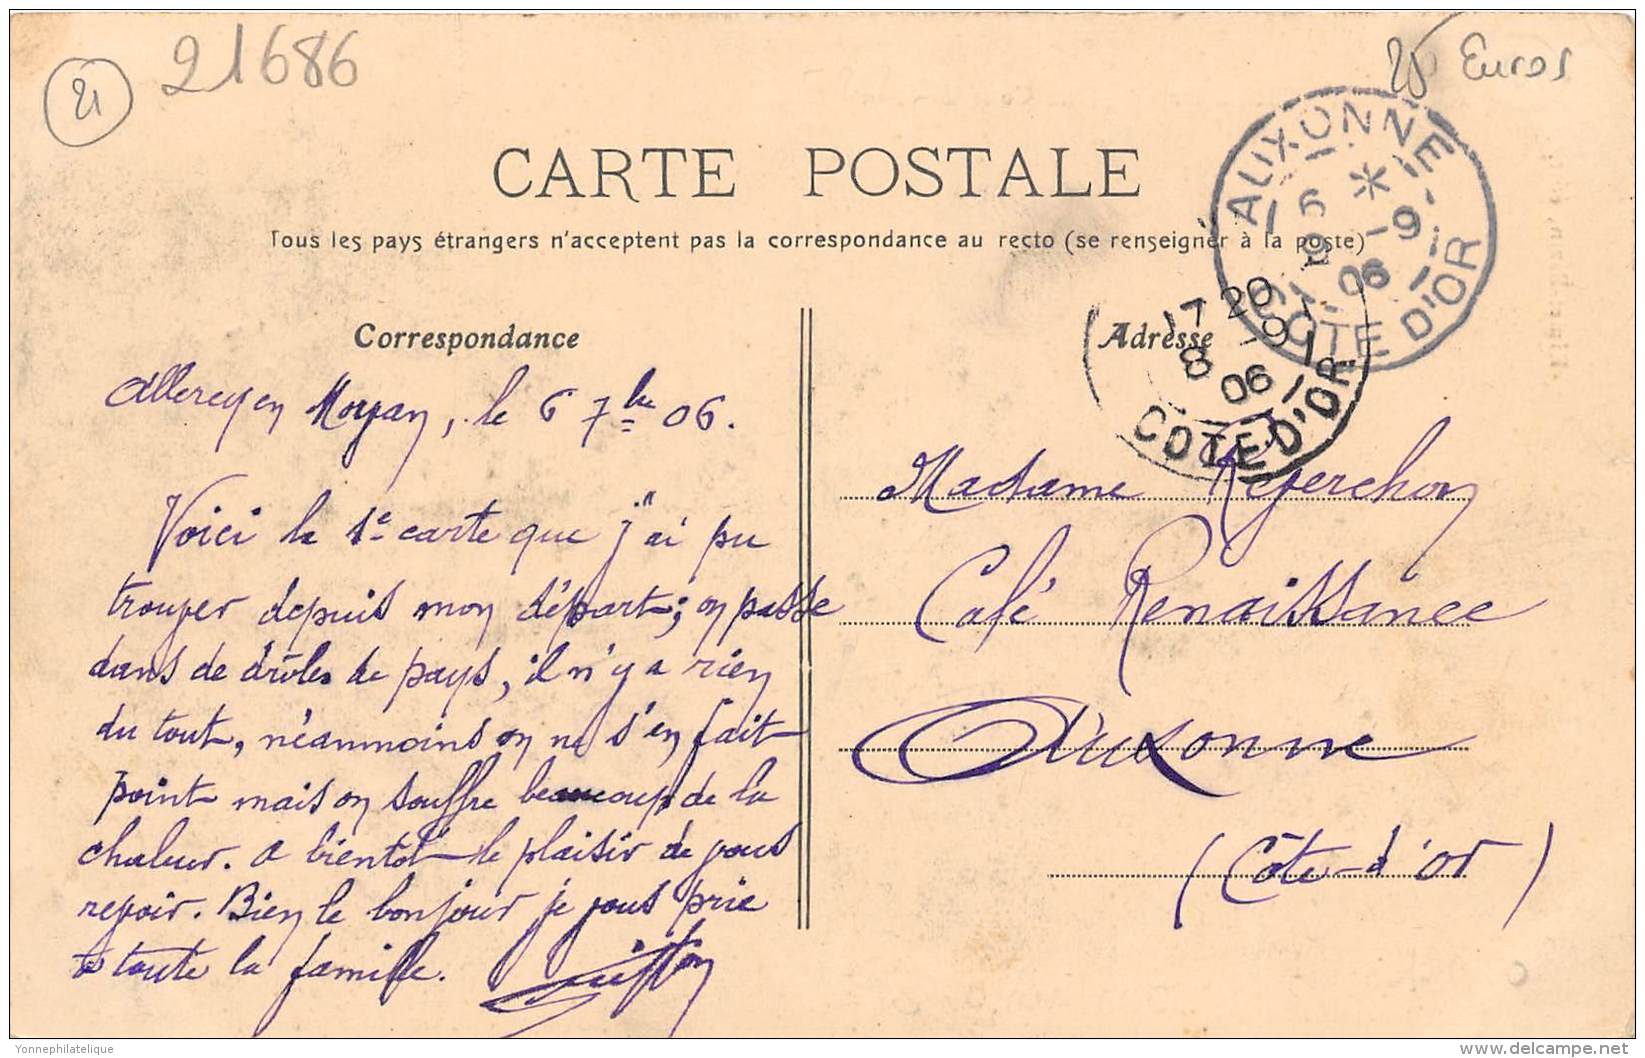 21
21686
25 Euros
CARTE POSTALE
Tous les pays étrangers n'acceptent pas la correspondance au recto (se renseigner à la poste)
AUXONNE
6 * -9
06
COTE D'OR
17 20
8 -9
06
COTE D'OR
Correspondance
Adresse
le 6 7bre 06.
Voici la 1e carte que j'ai pu
trouver depuis mon départ; on passe
dans de drôles de pays, il n'y a rien
du tout, néanmoins on ne s'en fait
point mais on souffre beaucoup de la
chaleur. A bientôt le plaisir de vous
revoir. Bien le bonjour je vous prie
à toute la famille.
Madame
Café Renaissance
Auxonne
(Côte-d'or)
Yonnephilatelique
delcampe.net